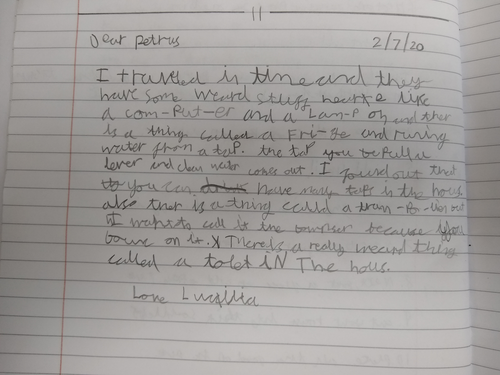 11
Dear Petrus 2/7/20
I travled in time and they
have some weard stuff hear like
a com-put-er and a Lam-P on and ther
is a thing called a Fri-ge and runing
water from a tap. the tap you
lever and clean water comes out. I found out that
you can have many taps in the hous
also ther is a thing calld a tram-P-
I want to call it the because if you
on it. There is a really weard thing
called a tolet in The hous.
Love Lucillia